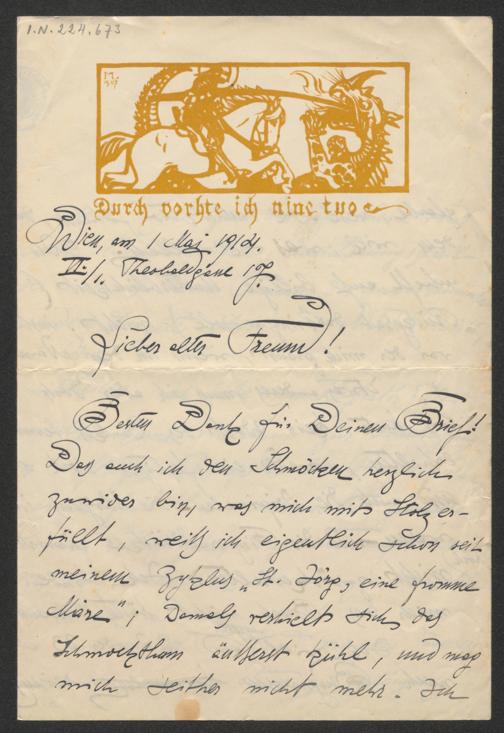 I.N. 224.673
Durch vorhte ich nine tuo
Wien, am 1 Mai 1914.
VI./1. Theobaldgasse 17.
Lieber alter Freund!
Besten Dank für Deinen Brief!
Daß auch ich den Schmöcken herzlich
zuwider bin, was mich mit Stolz er-
füllt, weiß ich eigentlich schon seit
meinem Zyklus „St. Jörg, eine fromme
Märe"; damals verhielt sich das
äußerst kühl, und mag
mich seither nicht mehr. Ich